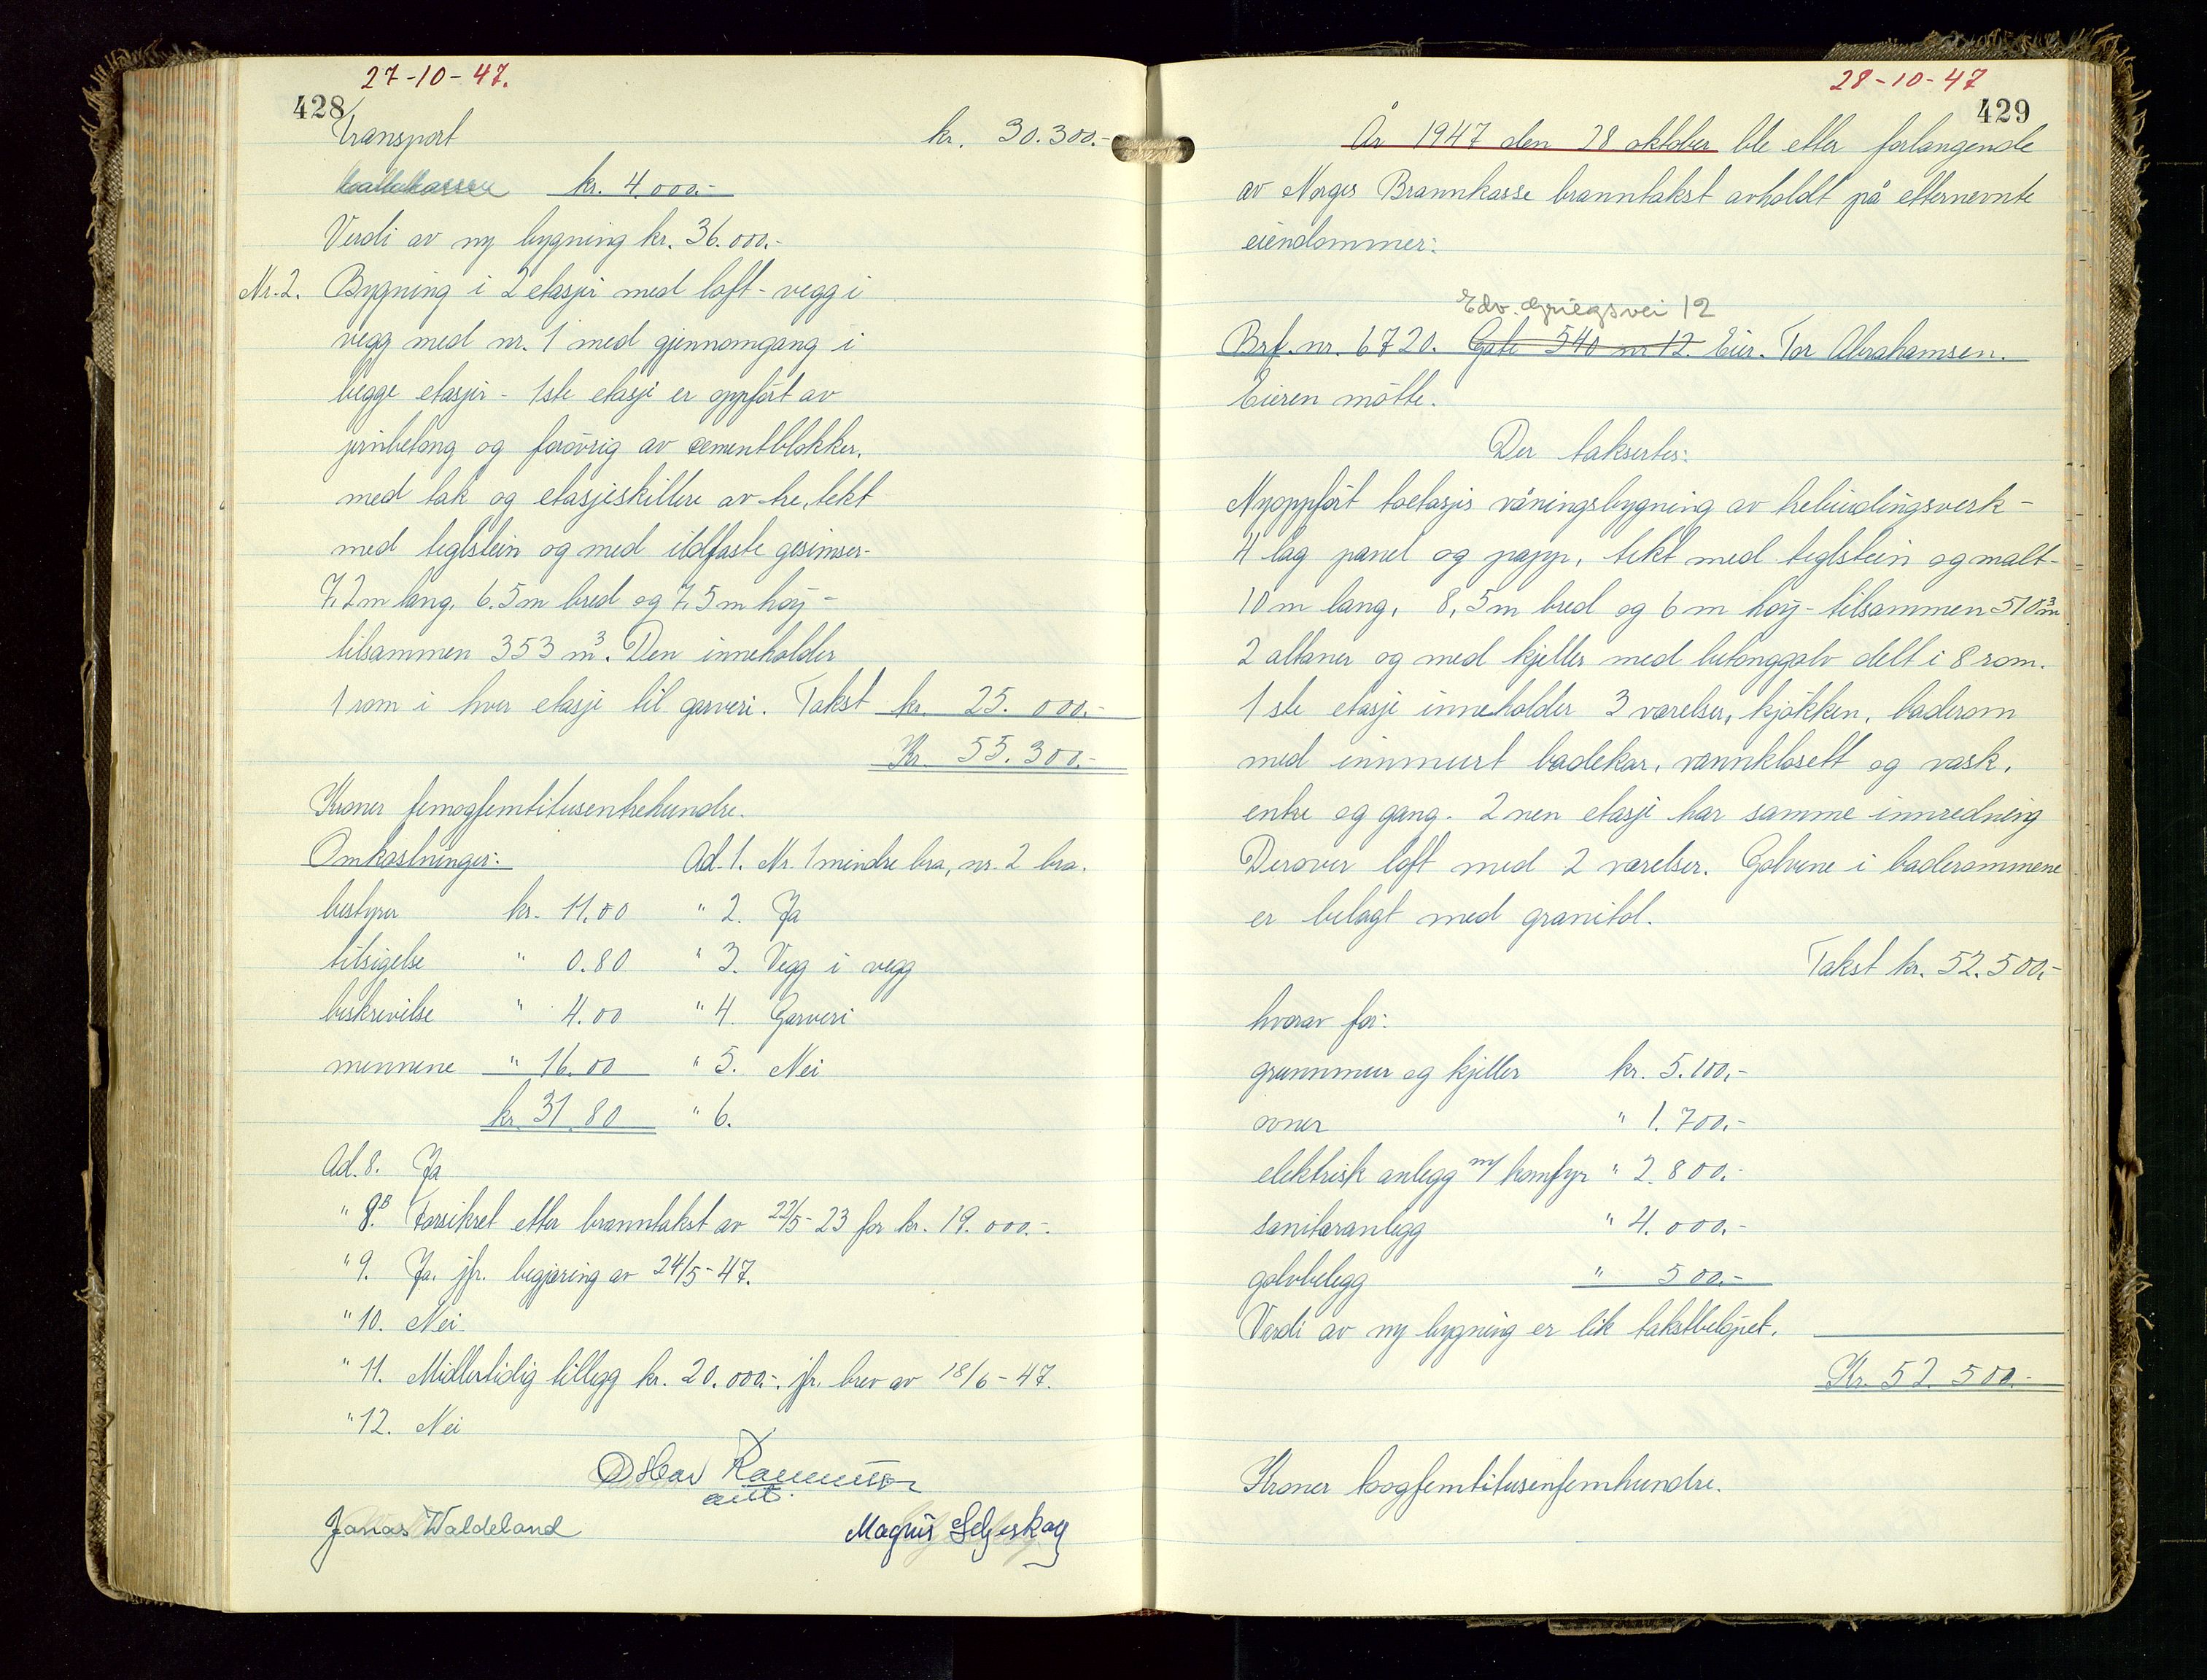 27-10-47.
428
Transport kr. 30.300.-
kr. 4.000.-
Verdi av ny bygning kr. 36.000.-
Nr. 2. Bygning i 2 etasjer med loft - vegg i
vegg med nr. 1 med gjennomgang i
begge etasjer - 1ste etasje er oppført av
jernbetong og forøvrig av cementblokker,
med tak og etasjeskillere av tre, tekt
med teglstein og med ildfaste gesimser-
7,2m lang, 6.5m bred og 7,5m høy -
tilsammen 353 m³. Den inneholder
1 rom i hver etasje til garveri. Takst kr. 25.000.-
Kr. 55.300.-
Kroner femogfemtitusentrehundre.
Omkostninger: Ad. 1. Nr. 1 mindre bra, nr. 2 bra.
bestyrer kr. 11.00 " 2. Ja
tilsigelse " 0.80 " 3. Vegg i vegg
beskrivelse " 4.00 " 4. Garveri
mennene " 16.00 " 5. Nei
kr. 31.80 " 6.
Ad. 8. Ja
" 8B. Forsikret etter branntakst av 22/5-23 for kr. 19.000.-.
" 9. Ja. jfr. begjæring av 24/5-47.
" 10. Nei.
" 11. Midlertidig tillegg kr. 20.000.-. jfr. brev av 18/6-47.
" 12. Nei
Oskar Rasmussen
Jonas Waldeland Magnus
28-10-47
429
År 1947 den 28 oktober ble etter forlangende
av Norges Brannkasse branntakst avholdt på etternevnte
eiendommer:
Edv. Griegsvei 12
Brf. nr. 6720. Gate 540 nr 12. Eier. Tor Abrahamsen.
Eieren møtte.
Der taksertes:
Nyoppført toetasjes våningsbygning av trebindingsverk -
4 lag panel og papp, tekt med teglstein og malt-
10 m lang, 8,5m bred og 6 m høy - tilsammen 510m³
2 altaner og med kjeller med betonggolv delt i 8 rom.
1 ste etasje inneholder 3 værelser, kjøkken, baderom
med innmurt badekar, vannklosett og vask,
entre og gang. 2 nen etasje har samme innredning
Derover loft med 2 værelser. Golvene i baderommene
er belagt med granitol.
Takst kr. 52.500.-
hvorav for:
grunnmur og kjeller kr. 5.100.-
ovner " 1.700.-
elektrisk anlegg m/ komfyr " 2.800.-
sanitæranlegg " 4.000.-
golvbelegg " 500.-
Verdi av ny bygning er lik takstbeløpet.
Kr. 52.500.-
Kroner toogfemtitusenfemhundre.